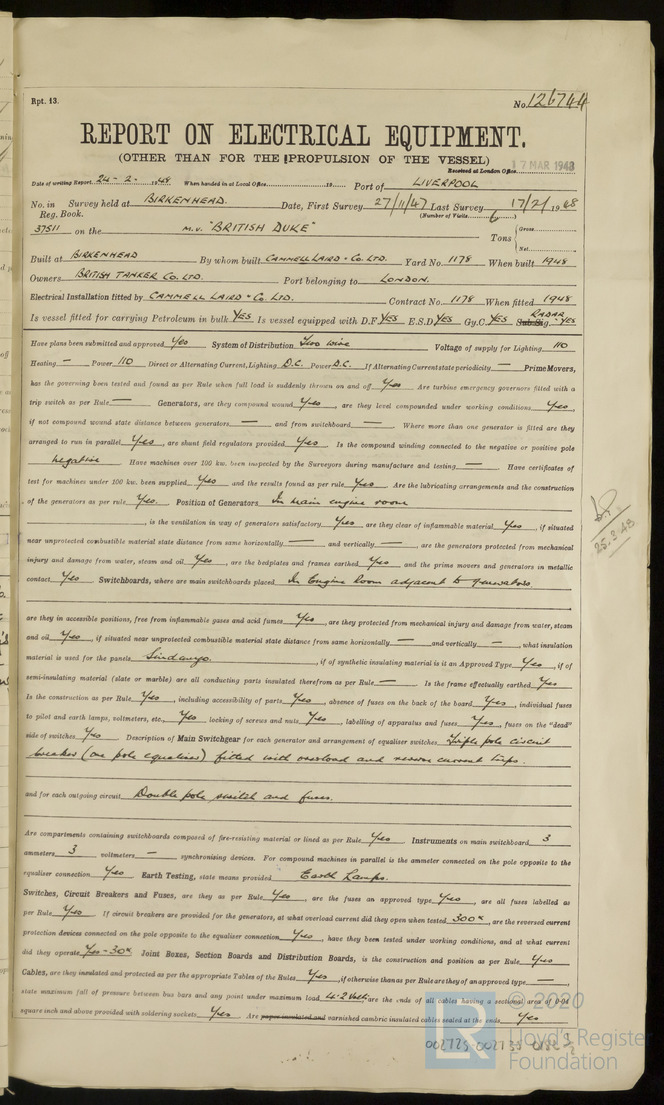 Rpt. 13.
No. 126744
REPORT ON ELECTRICAL EQUIPMENT.
(OTHER THAN FOR THE PROPULSION OF THE VESSEL)
17 MAR 1948
Received at London Office
Date of writing Report 24 - 2. 1948 When handed in at Local Office 19 Port of LIVERPOOL
No. in Survey held at BIRKENHEAD. Date, First Survey 27/11/47 Last Survey 17/2/1948
Reg. Book. (Number of Visits 6)
37511 on the M.V. "BRITISH DUKE" Tons { Gross
Net
Built at BIRKENHEAD By whom built CAMMELL LAIRD & CO. LTD. Yard No. 1178 When built 1948
Owners BRITISH TANKER CO. LTD. Port belonging to LONDON.
Electrical Installation fitted by CAMMELL LAIRD & CO. LTD. Contract No. 1178 When fitted 1948
Is vessel fitted for carrying Petroleum in bulk YES Is vessel equipped with D.F. YES E.S.D. YES Gy.C. YES Sub.Sig. RADAR YES
Have plans been submitted and approved Yes System of Distribution Two wire Voltage of supply for Lighting 110
Heating — Power 110 Direct or Alternating Current, Lighting D.C. Power D.C. If Alternating Current state periodicity — Prime Movers,
has the governing been tested and found as per Rule when full load is suddenly thrown on and off Yes Are turbine emergency governors fitted with a
trip switch as per Rule — Generators, are they compound wound Yes, are they level compounded under working conditions Yes,
if not compound wound state distance between generators — and from switchboard — Where more than one generator is fitted are they
arranged to run in parallel Yes, are shunt field regulators provided Yes Is the compound winding connected to the negative or positive pole
Negative Have machines over 100 kw. been inspected by the Surveyors during manufacture and testing — Have certificates of
test for machines under 100 kw. been supplied Yes and the results found as per rule Yes Are the lubricating arrangements and the construction
of the generators as per rule Yes. Position of Generators In main engine room
, is the ventilation in way of generators satisfactory Yes are they clear of inflammable material Yes, if situated
near unprotected combustible material state distance from same horizontally — and vertically —, are the generators protected from mechanical
injury and damage from water, steam and oil Yes, are the bedplates and frames earthed Yes and the prime movers and generators in metallic
contact Yes Switchboards, where are main switchboards placed In Engine Room adjacent to generators
are they in accessible positions, free from inflammable gases and acid fumes Yes, are they protected from mechanical injury and damage from water, steam
and oil Yes, if situated near unprotected combustible material state distance from same horizontally — and vertically —, what insulation
material is used for the panels Sindanyo, if of synthetic insulating material is it an Approved Type Yes, if of
semi-insulating material (slate or marble) are all conducting parts insulated therefrom as per Rule — Is the frame effectually earthed Yes
Is the construction as per Rule Yes, including accessibility of parts Yes, absence of fuses on the back of the board Yes, individual fuses
to pilot and earth lamps, voltmeters, etc., Yes locking of screws and nuts Yes, labelling of apparatus and fuses Yes, fuses on the "dead"
side of switches Yes Description of Main Switchgear for each generator and arrangement of equaliser switches Triple pole circuit
breaker (one pole equaliser) fitted with overload and reverse current trips.
and for each outgoing circuit Double pole switch and fuses.
Are compartments containing switchboards composed of fire-resisting material or lined as per Rule Yes Instruments on main switchboard 3
ammeters 3 voltmeters — synchronising devices. For compound machines in parallel is the ammeter connected on the pole opposite to the
equaliser connection Yes Earth Testing, state means provided Earth Lamps.
Switches, Circuit Breakers and Fuses, are they as per Rule Yes, are the fuses an approved type Yes, are all fuses labelled as
per Rule Yes If circuit breakers are provided for the generators, at what overload current did they open when tested 300 A, are the reversed current
protection devices connected on the pole opposite to the equaliser connection Yes, have they been tested under working conditions, and at what current
did they operate Yes - 30 A Joint Boxes, Section Boards and Distribution Boards, is the construction and position as per Rule Yes
Cables, are they insulated and protected as per the appropriate Tables of the Rules Yes, if otherwise than as per Rule are they of an approved type —,
state maximum fall of pressure between bus bars and any point under maximum load 4.2 Volts, are the ends of all cables having a sectional area of 0.04
square inch and above provided with soldering sockets Yes Are paper insulated and varnished cambric insulated cables sealed at the ends Yes
25.3.48
© 2020
Lloyd's Register
Foundation